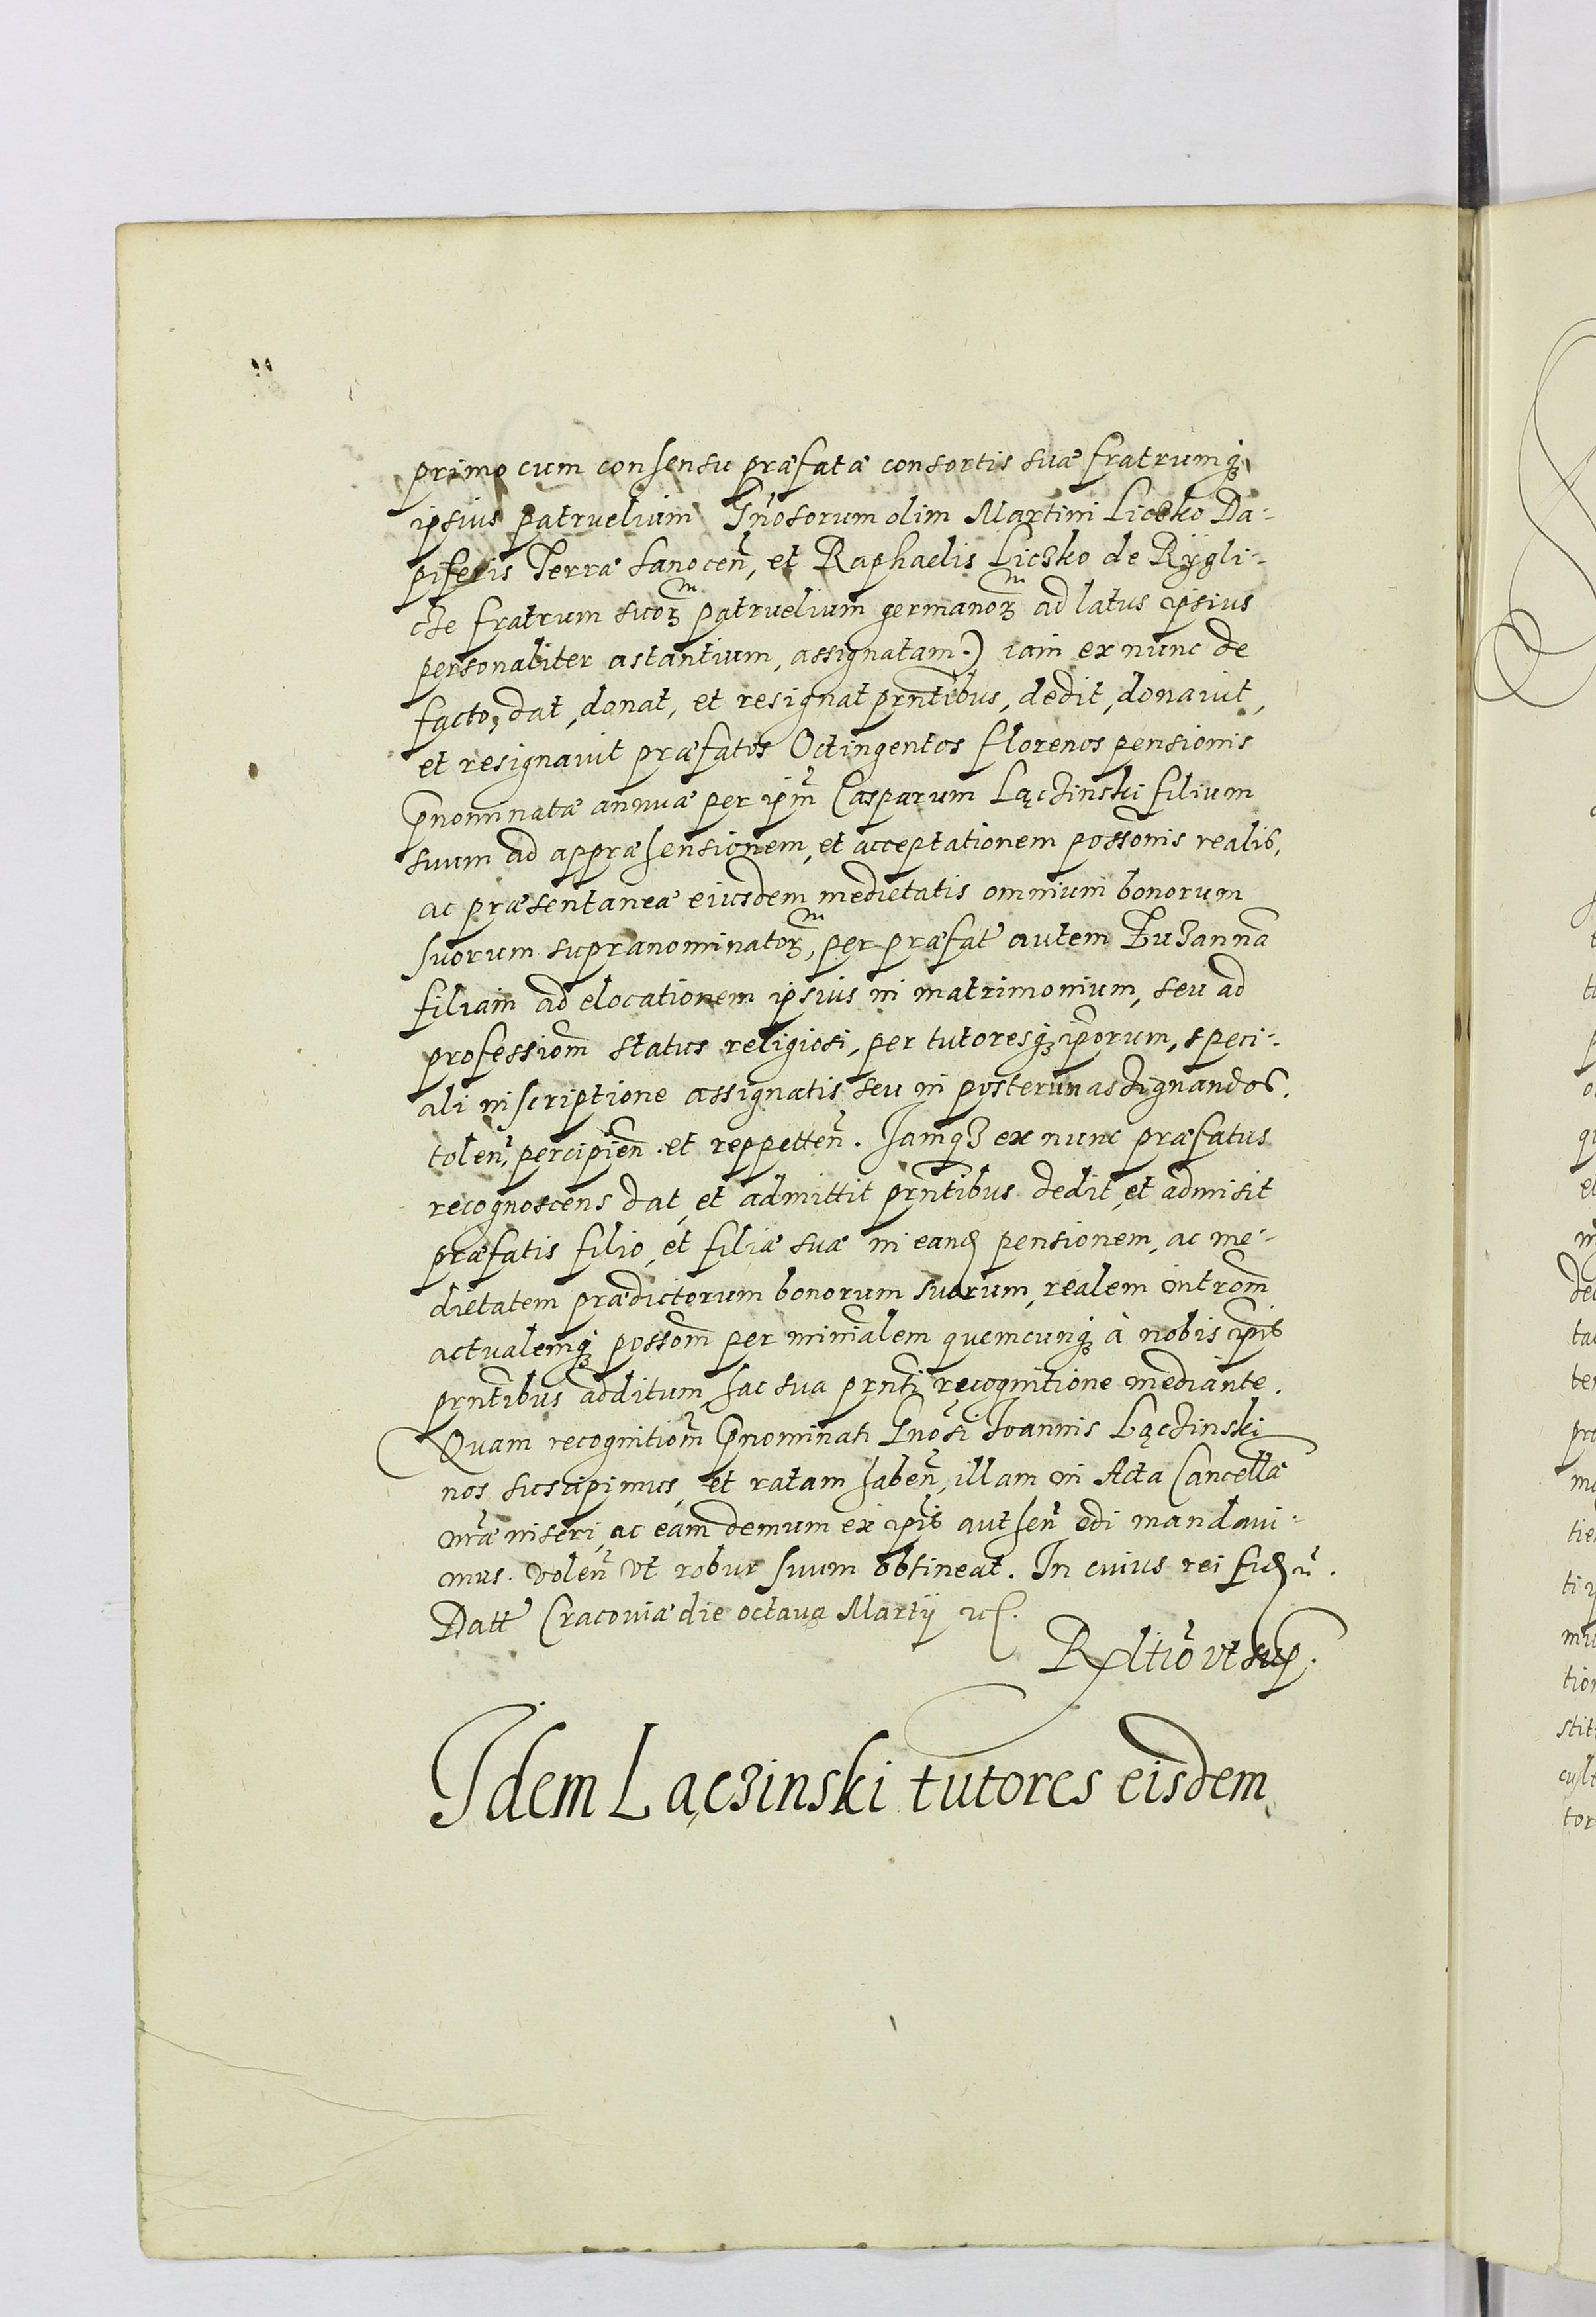 primo cum consensu præfatæ consortis suæ fratrumq;
ipsius patruelium Gnosorum olim Martini Liczko Da-
piferis Terræ Sanocen, et Raphaelis Liczko de Rÿgli-
cze fratrum suorum patruelium germanorum ad latus ipsius
personaliter astantium, assignatam.) iam ex nunc de
facto, dat, donat, et resignat prntibus, dedit, donauit,
et resignauit præfatos Octingentos florenos pensionis
pnominatæ annuæ per ipm Casparum Lączinski filium
suum ad appræhensionem, et acceptationem possonis realis,
ac præsentaneæ eiusdem medietatis omnium bonorum
suorum supranominatorum, per præfat autem Zuzanna
filiam ad elocationem ipsius in matrimonium, seu ad
professiom status religiosi, per tutoresq; iporum, speci-
ali inscriptione assignatis seu in posterum assignandos.
tolen, percipien. et reppetten. Iamq3 ex nunc præfatus
recognoscens dat, et admittit prntibus dedit, et admisit
præfatis filio, et filiæ suæ in eand pensionem, ac me-
dietatem prædictorum bonorum suorum, realem introm
actualemq; possom per minialem quemcunq; à nobis ipis
prntibus additum, hac sua prnti recognitione mediante.
Quam recognitiom pnominati Gnosi Ioannis Lączinski
nos suscipimus, et ratam haben, illam in Acta Cancellæ
nræ inseri, ac eam demum ex ipis authen edi mandaui-
mus. volen vt robur suum obtineat. In cuius rei fid etc.
Datt Cracouiæ die octaua Martij etc.
Rltio vt sup.
Idem Lączinski tutores eisdem